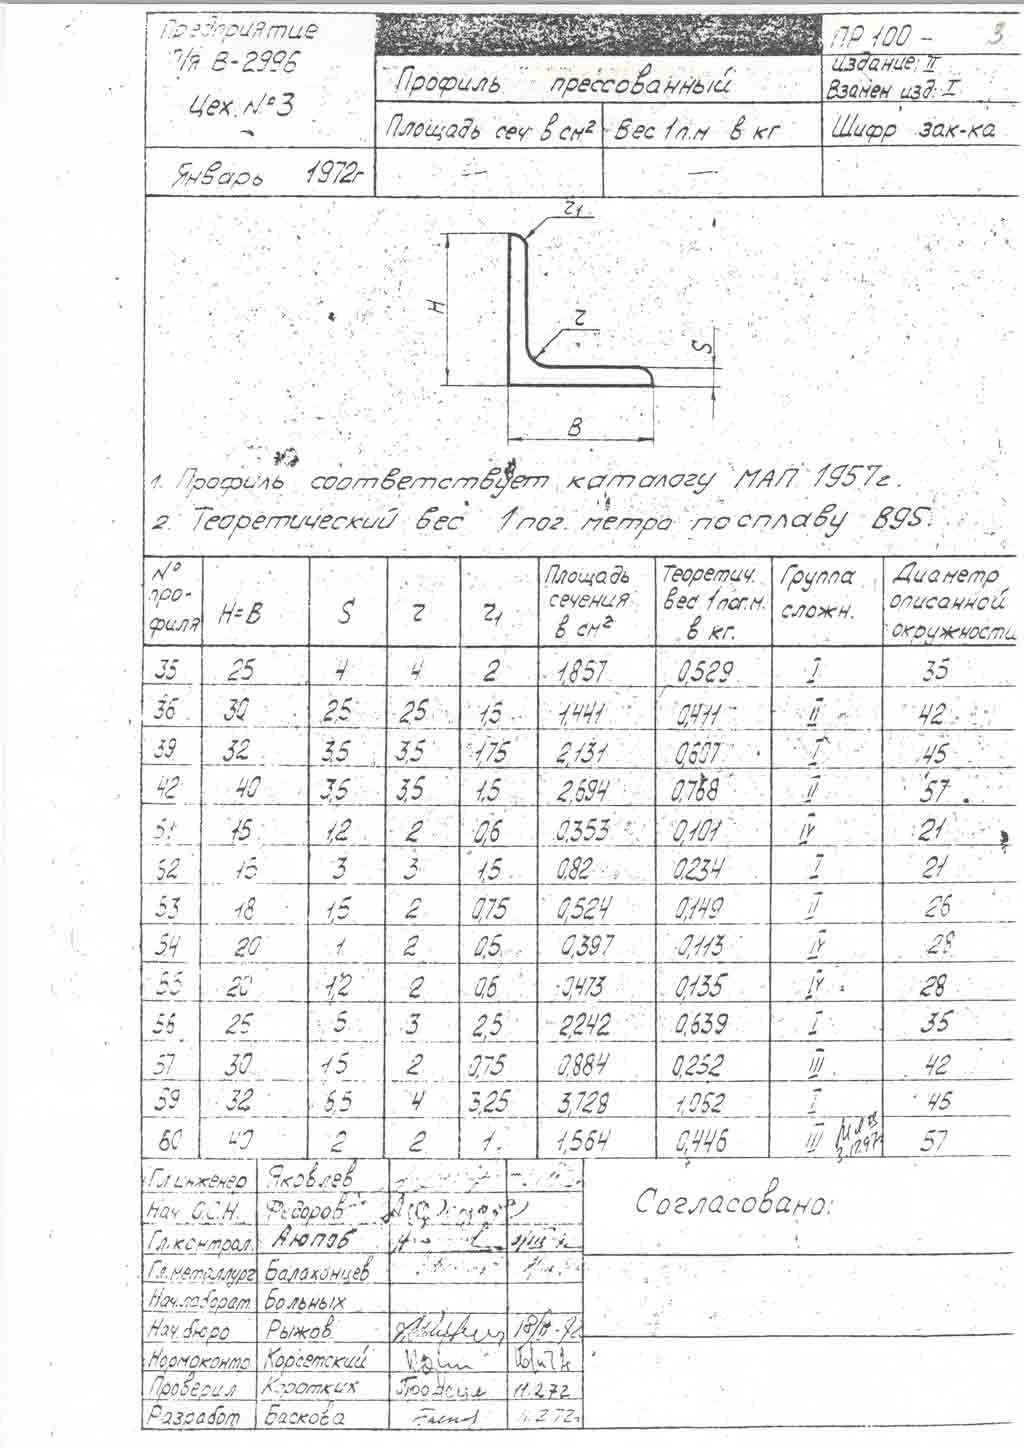 Предприятие
П/Я В-2996
Цех №3
Январь 1972г
Профиль прессованный
Площадь сеч в см² Вес 1 п.м в кг
— —
ПР100 - 3
издание: II
Взамен изд: I
Шифр зак-ка
r1
H
r
S
B
1. Профиль соответствует каталогу МАП 1957г.
2. Теоретический вес 1 пог. метра по сплаву В95.
№ про-филя H=B S r r1 Площадь сечения в см² Теоретич. вес 1 пог.м. в кг. Группа сложн. Диаметр описанной окружности
35 25 4 4 2 1,857 0,529 I 35
36 30 2,5 2,5 1,5 1,441 0,411 II 42
39 32 3,5 3,5 1,75 2,131 0,607 I 45
42 40 3,5 3,5 1,5 2,694 0,768 II 57
51 15 1,2 2 0,6 0,353 0,101 IV 21
52 15 3 3 1,5 0,82 0,234 I 21
53 18 1,5 2 0,75 0,524 0,149 II 26
54 20 1 2 0,5 0,397 0,113 IV 28
55 20 1,2 2 0,6 0,473 0,135 IV 28
56 25 5 3 2,5 2,242 0,639 I 35
57 30 1,5 2 0,75 0,884 0,252 III 42
59 32 6,5 4 3,25 3,728 1,062 I 45
60 40 2 2 1 1,564 0,446 III 57
Гл.инженер Яковлев
Нач. О.С.Н. Федоров
Гл.контрол. Аюпов
Гл.металлург Балахонцев
Нач.лаборат. Больных
Нач.бюро Рыжов
Нормоконтр Корсетский
Проверил Коротких 11.2.72
Разработ Баскова 11.2.72г
Согласовано: